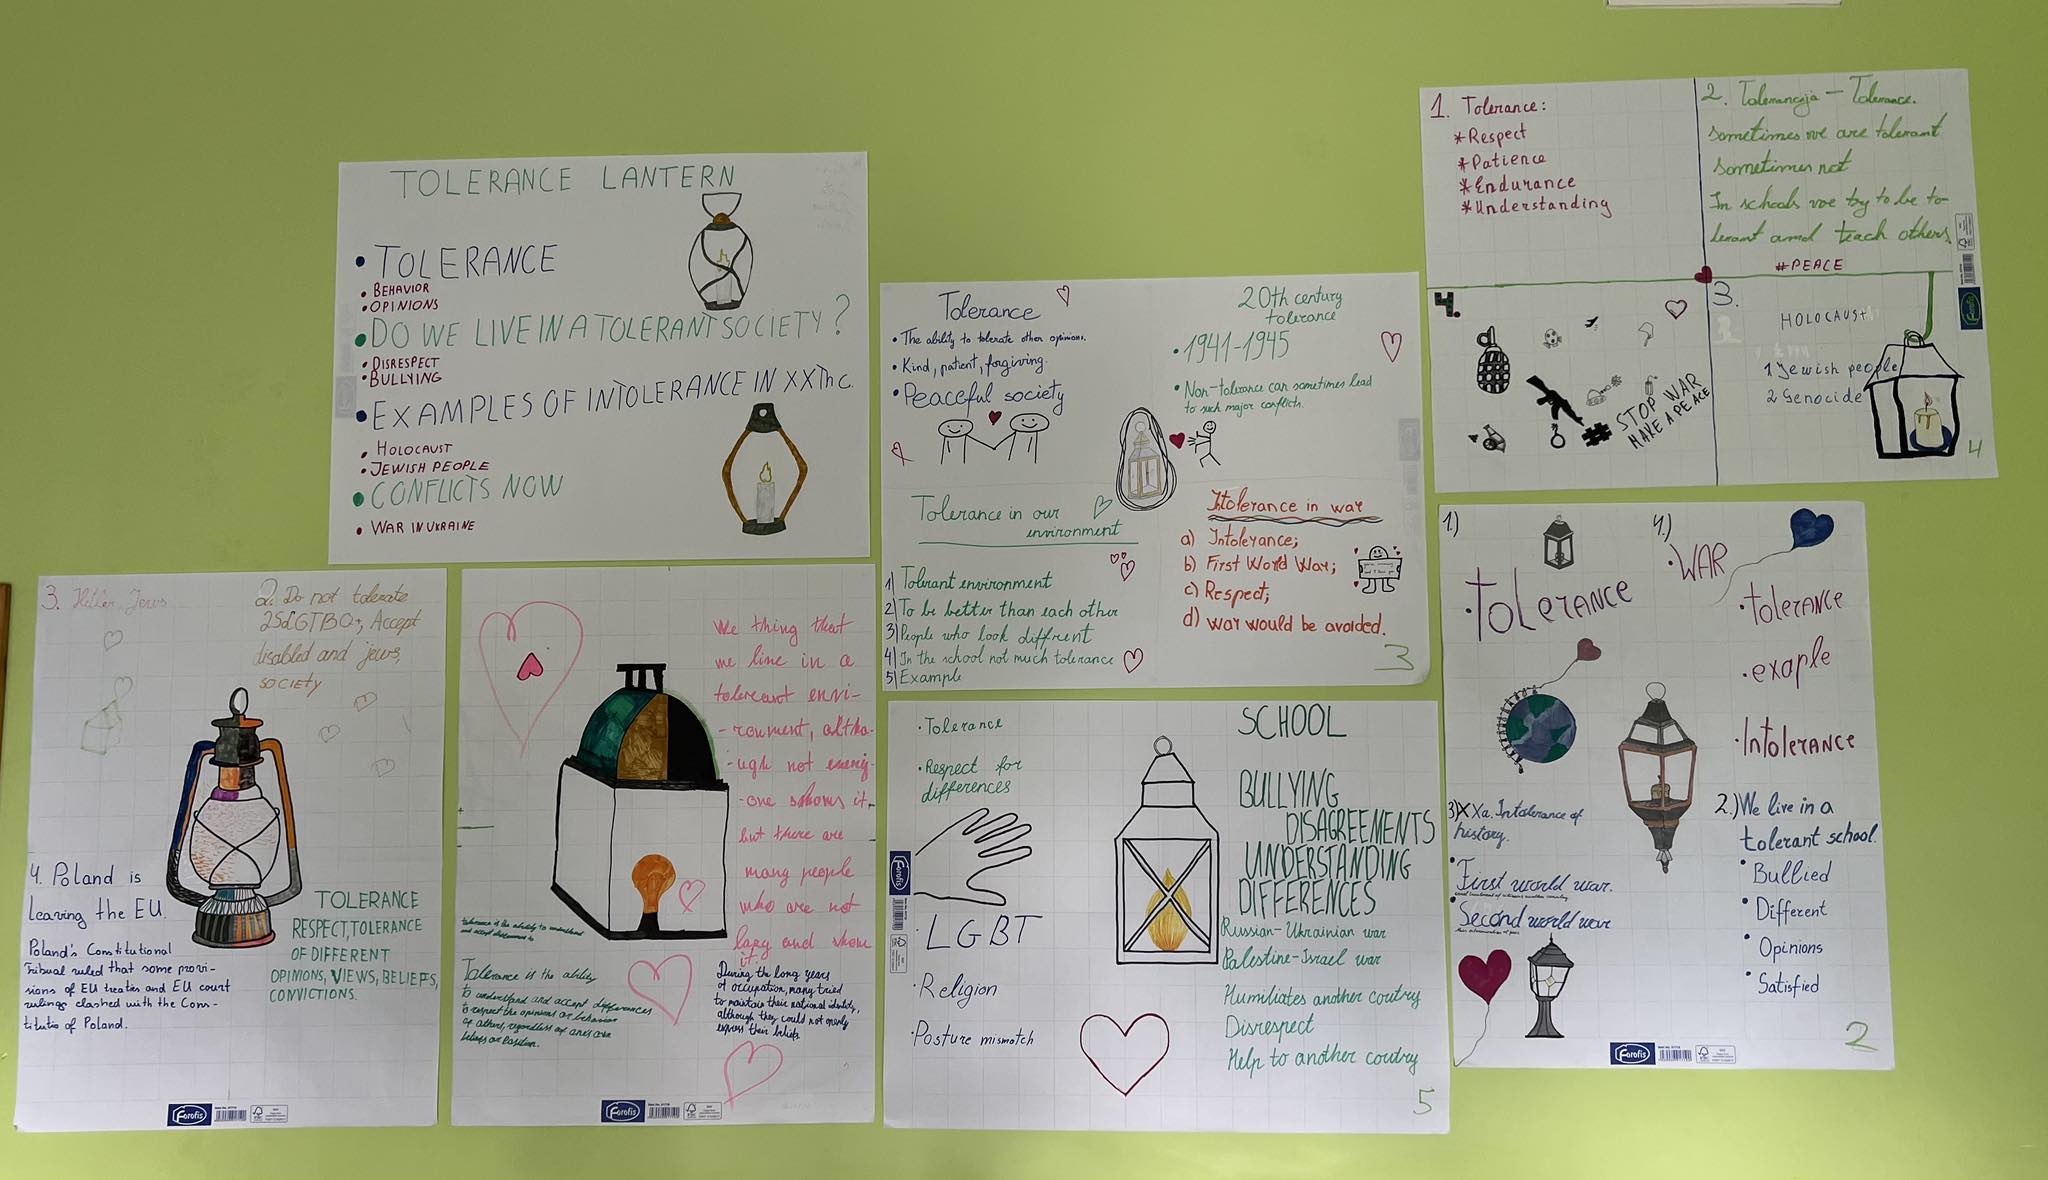 TOLERANCE LANTERN
• TOLERANCE
• BEHAVIOR
• OPINIONS
• DO WE LIVE IN A TOLERANT SOCIETY?
• DISRESPECT
• BULLYING
• EXAMPLES OF INTOLERANCE IN XXTH C.
• HOLOCAUST
• JEWISH PEOPLE
• CONFLICTS NOW
• WAR IN UKRAINE
3. Hitler, Jews
2. Do not tolerate
2SLGTBQ+, Accept
disabled and jews,
society
4. Poland is
leaving the EU.
Poland's Constitutional
Tribunal ruled that some provi-
sions of EU treaties and EU court
rulings clashed with the Cons-
titutio of Poland.
TOLERANCE
RESPECT, TOLERANCE
OF DIFFERENT
OPINIONS, VIEWS, BELIEFS,
CONVICTIONS.
Forofis
We thing that
we line in a
tolerant envi-
-ronment, altho-
-ugh not every-
-one shows it,
but there are
many people
who are not
lazy and show
it.
tolerance is the ability to understand
and accept
Tolerance is the ability
to understand and accept differences
to respect the opinions or behavior
of others, regardless of one's own
beliefs or position.
During the long years
of occupation, many tried
to maintain their national identity,
although they could not openly
express their beliefs.
Forofis
Tolerance
• The ability to tolerate other opinions.
• Kind, patient, forgiving.
• Peaceful society
20th century
tolerance
• 1941-1945
• Non-tolerance can sometimes lead
to such major conflicts.
Tolerance in our
environment
1) Tolerant environment
2) To be better than each other
3) People who look diffrent
4) In the school not much tolerance
5) Example
Intolerance in war
a) Intolerance;
b) First World War;
c) Respect;
d) war would be avoided.
3
• Tolerance
• Respect for
differences
• LGBT
• Religion
• Posture mismatch
Forofis
SCHOOL
BULLYING
DISAGREEMENTS
UNDERSTANDING
DIFFERENCES
Russian-Ukrainian war
Palestine-Israel war
Humiliates another coutry
Disrespect
Help to another coutry
5
1. Tolerance:
*Respect
*Patience
*Endurance
*Understanding
2. Tolerancija — Tolerance.
Sometimes we are tolerant
sometimes not
In schools we try to be to-
lerant and teach others.
#PEACE
4.
# STOP WAR
MAKE A PEACE
3.
HOLOCAUST
1 Jewish people
2 Genocide
4
1.)
• TOLERANCE
4.)
• WAR
• tolerance
• exaple
• Intolerance
3) XXa. Intolerance of
history.
• First world war.
• Second world war
2.) We live in a
tolerant school.
• Bullied
• Different
• Opinions
• Satisfied
Forofis
2